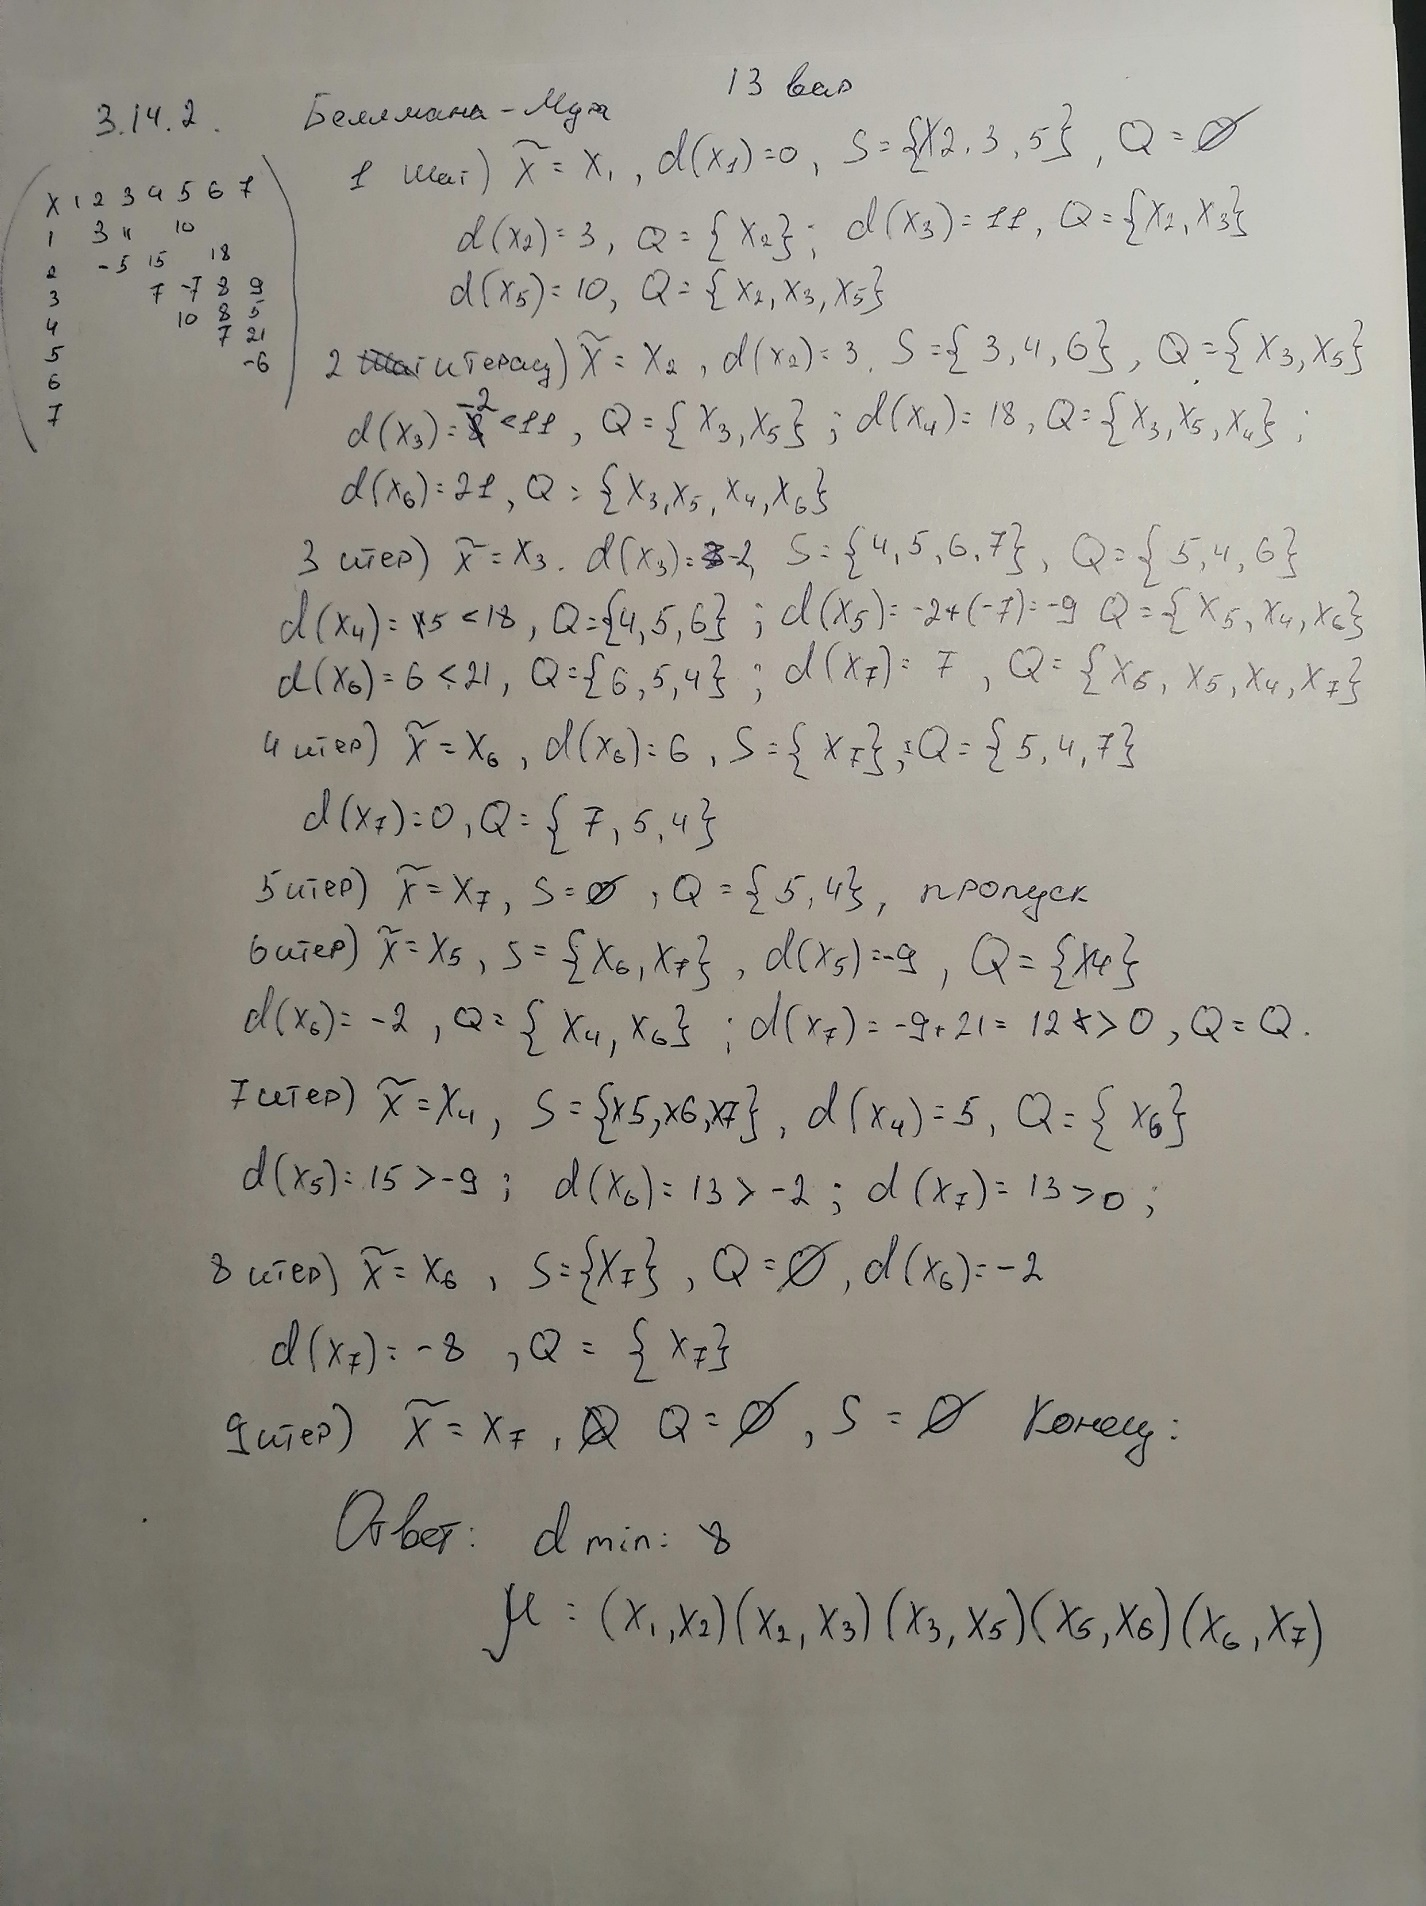 13 вар
3.14.2. Беллмана-Мура
1 шаг) x̃ = x₁, d(x₁)=0, S={x2, 3, 5}, Q = ∅
d(x₂)=3, Q = {x₂}; d(x₃)=11, Q={x₂, x₃}
d(x₅)=10, Q={x₂, x₃, x₅}
x 1 2 3 4 5 6 7
1 3 11 10
2 -5 15 18
3 7 -7 8 9
4 10 8 5
5 7 21
6 -6
7
2 итерац) x̃ = x₂, d(x₂)=3. S={3,4,6}, Q={x₃, x₅}
d(x₃)=-2<11, Q={x₃, x₅}; d(x₄)=18, Q={x₃, x₅, x₄};
d(x₆)=21, Q = {x₃, x₅, x₄, x₆}
3 итер) x̃ = x₃. d(x₃)=-2, S={4,5,6,7}, Q={5,4,6}
d(x₄)=5<18, Q={4,5,6}; d(x₅)=-2+(-7)=-9 Q={x₅, x₄, x₆}
d(x₆)=6<21, Q={6,5,4}; d(x₇)=7, Q={x₆, x₅, x₄, x₇}
4 итер) x̃ = x₆, d(x₆)=6, S={x₇}; Q={5,4,7}
d(x₇)=0, Q={7,5,4}
5 итер) x̃ = x₇, S=∅, Q={5,4}, пропуск
6 итер) x̃ = x₅, S={x₆, x₇}, d(x₅)=-9, Q={x4}
d(x₆)=-2, Q={x₄, x₆}; d(x₇)=-9+21=12>0, Q=Q.
7 итер) x̃ = x₄, S={x5,x6,x7}, d(x₄)=5, Q={x₆}
d(x₅)=15>-9; d(x₆)=13>-2; d(x₇)=13>0;
8 итер) x̃ = x₆, S={x₇}, Q=∅, d(x₆)=-2
d(x₇)=-8, Q={x₇}
9 итер) x̃ = x₇, Q=∅, S=∅ Конец:
Ответ: d min: 8
μ: (x₁,x₂)(x₂,x₃)(x₃,x₅)(x₅,x₆)(x₆,x₇)